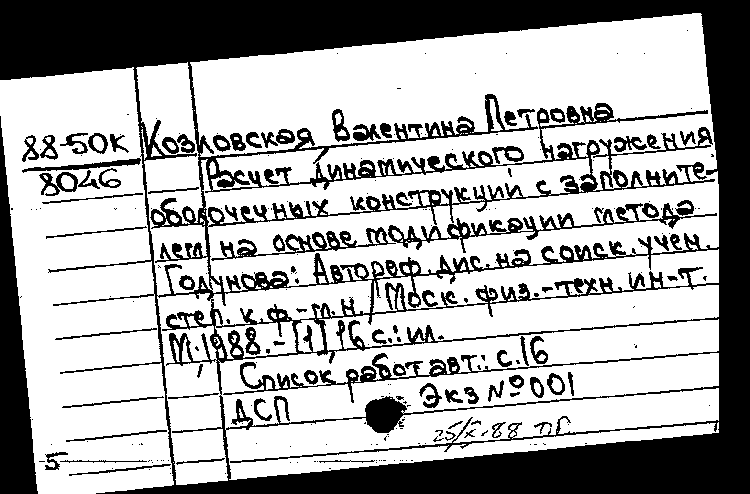 88-50К
8046
Козловская, Валентина Петровна
Расчет динамического нагружения
оболочечных конструкций с заполните-
лем на основе модификации метода
Годунова: Автореф. дис. на соиск. учен.
степ. к.ф.-м.н. / Моск. физ.-техн. ин-т.
М., 1988. - [1], 16 с.: ил.
Список работ авт.: с. 16
ДСП Экз № 001
25/X-88 ПГ
5